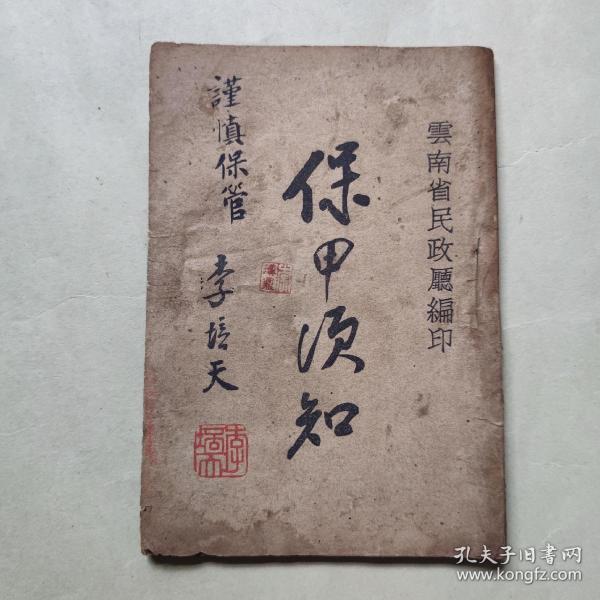 雲南省民政廳編印
保甲須知
謹慎保管 李培天
孔夫子旧书网
www.kongfz.com